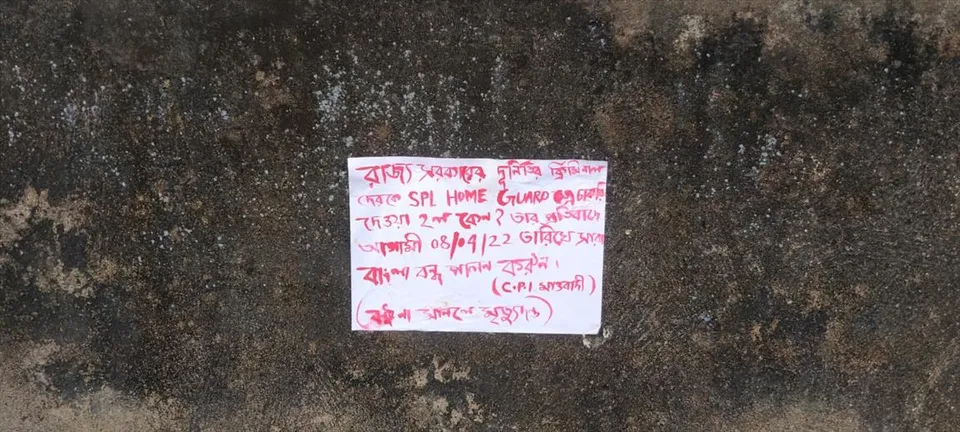 রাজ্য সরকারের দূর্নিতির ক্রিমিনাল
দেরকে SPL HOME GUARD এর চাকরি
দেওয়া হল কেন? তার প্রতিবাদে
আগামী 08/04/22 তারিখে সারা
বাংলা বন্ধ পালন করুন।
(C.P.I মাওবাদী)
(বন্ধ না মানলে মৃত্যুদণ্ড)